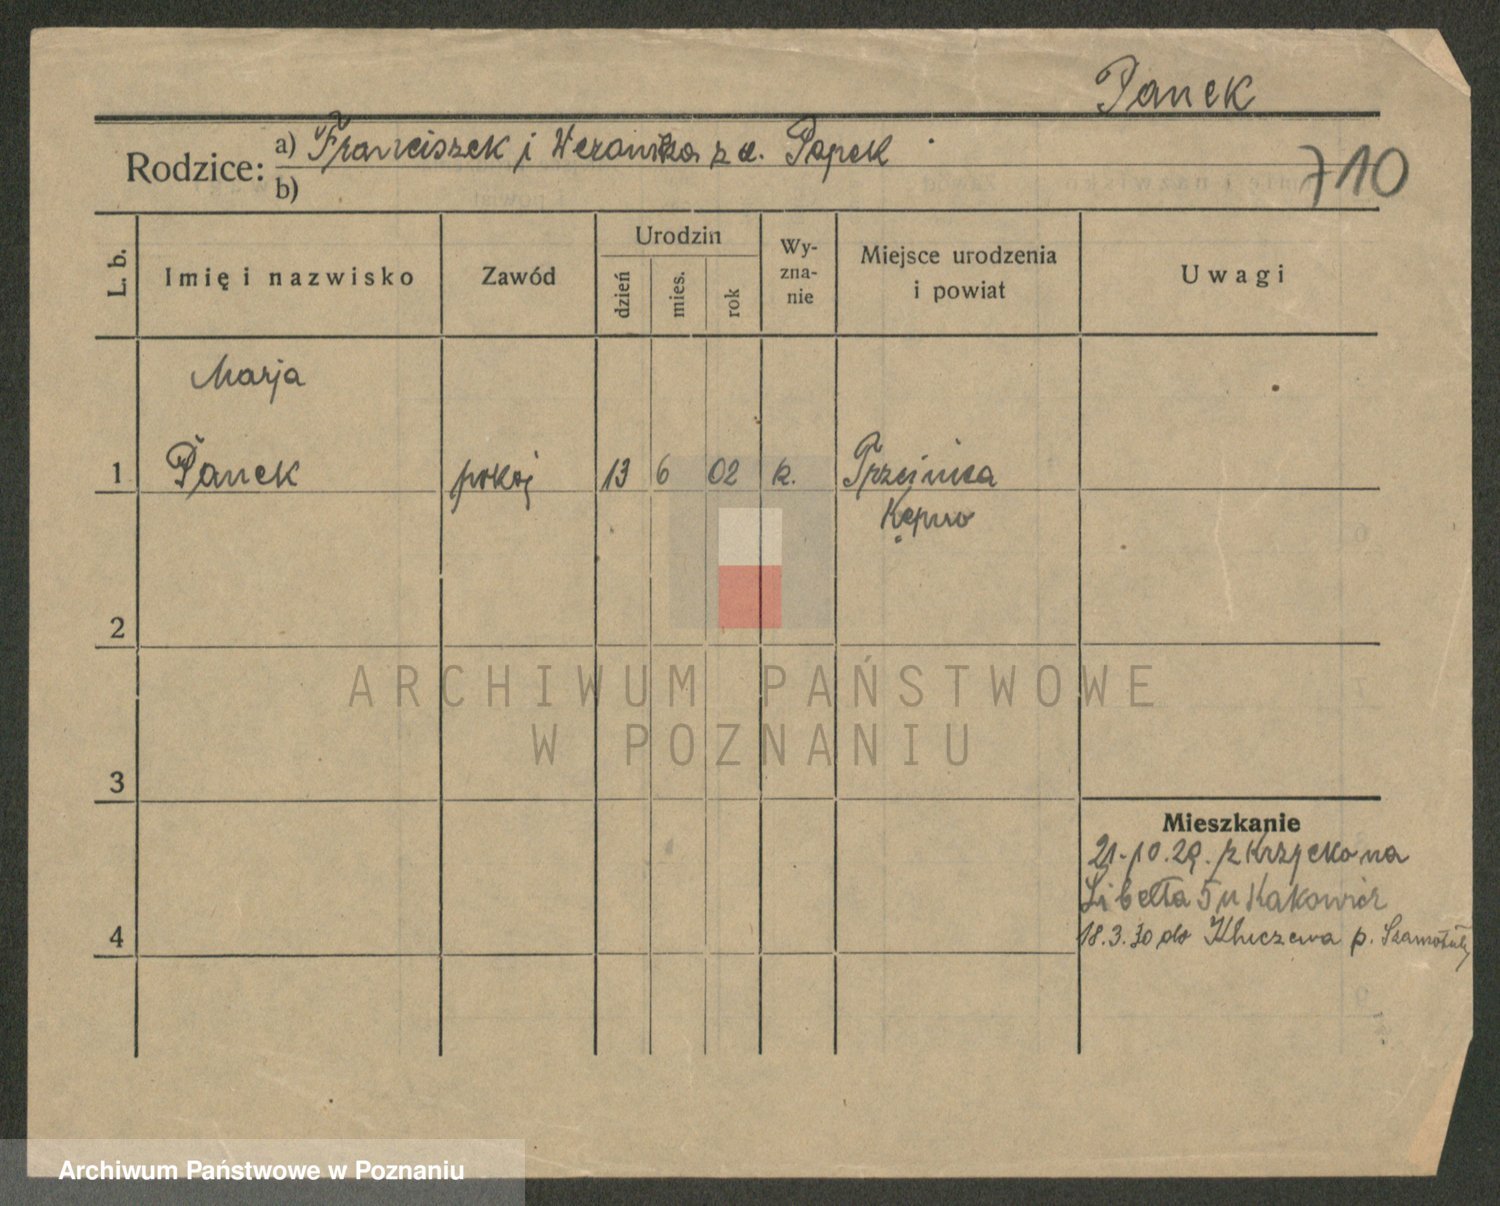 Panek
Rodzice: a) Franciszek i Weronika z d. Papek
b)
710
L. b.
Imię i nazwisko
Zawód
Urodzin
dzień
mies.
rok
Wy-
zna-
nie
Miejsce urodzenia
i powiat
Uwagi
Marja
1 Panek pokoj 13 6 02 k. Trzcinica
Kępno
2
3
4
ARCHIWUM PAŃSTWOWE
W POZNANIU
Mieszkanie
21-10.29. z Krzycko na
Libelta 5 u
18.3.30 do p. Szamotuły
Archiwum Państwowe w Poznaniu